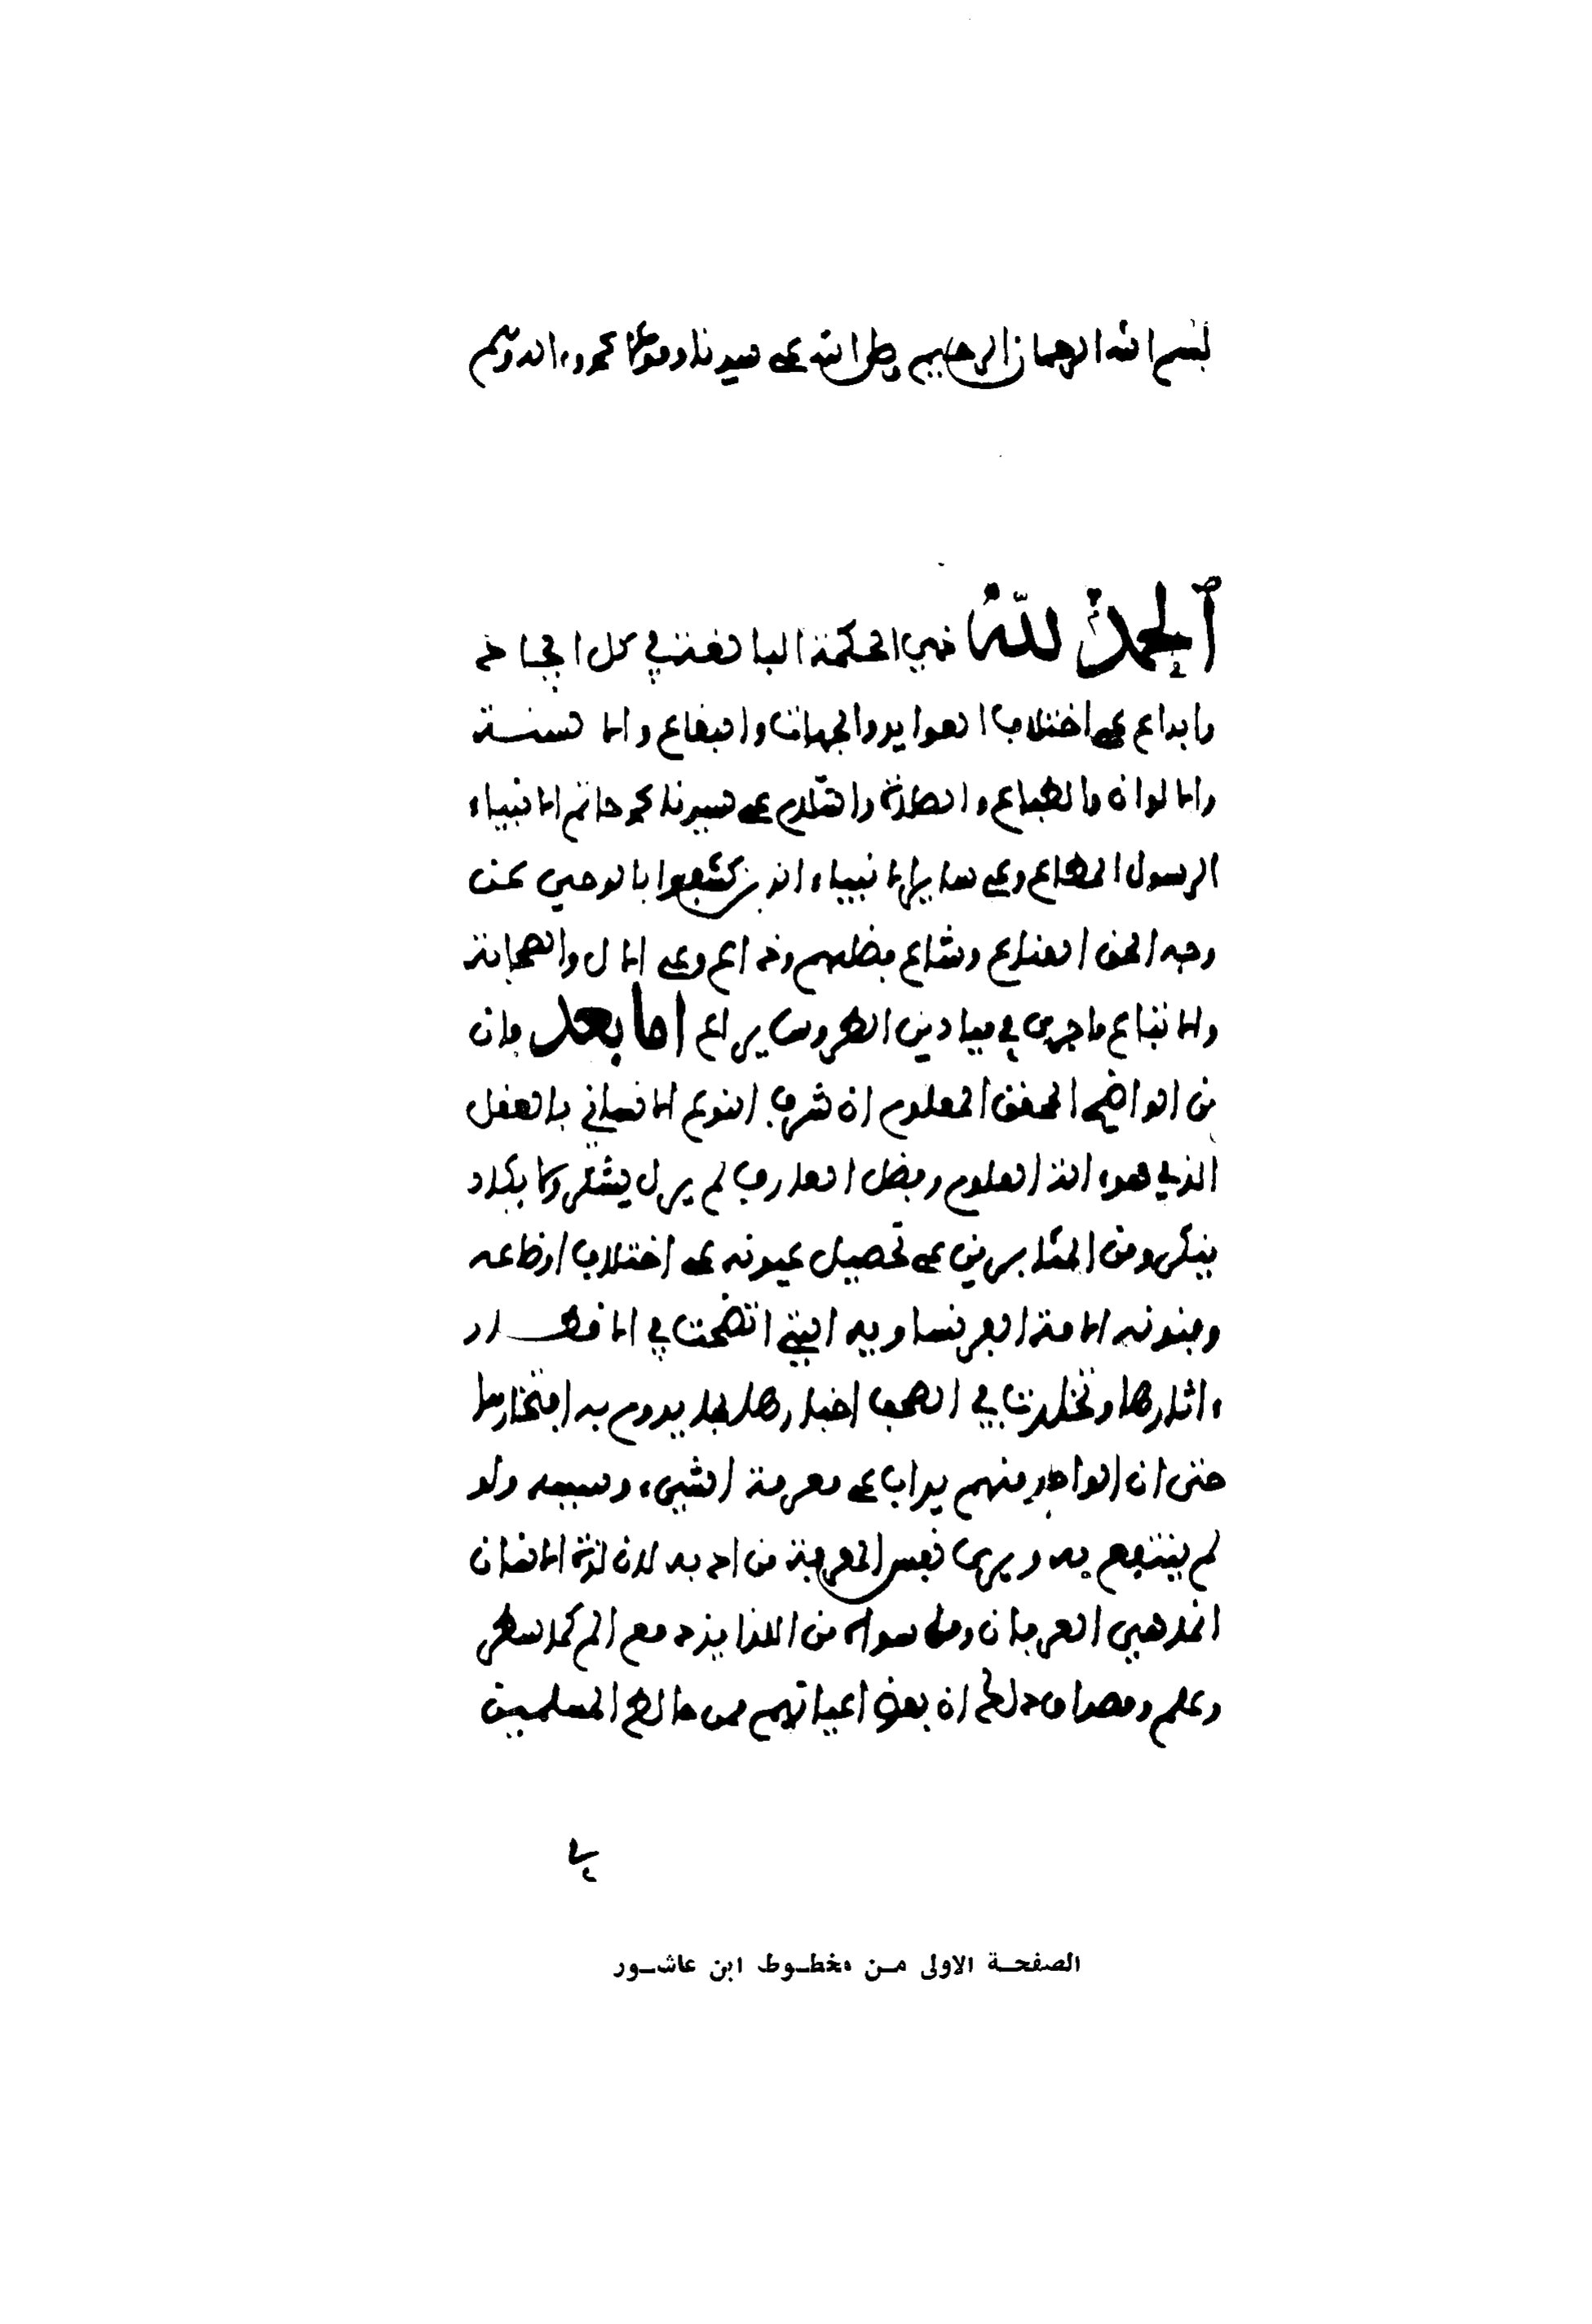 بسم الله الرحمان الرحيم وصلى الله على سيدنا ومولانا محمد وءاله وسلم
الحمد لله ذي الحكمة البالغة في كل ايجاد
وابداع على اختلاف العوايد والجهات والبقاع والالسنة
والالوان والطباع والصلاة والسلام على سيدنا محمد خاتم الانبياء
الرسول المطاع وعلى ساير الانبياء الذين كشفوا بالوحي عن
وجه الحق القناع وشاع فضلهم وذاع وعلى الال والصحابة
والاتباع ما جرى في ميادين الطروس يراع اما بعد فان
من الواضح المحقق المعلوم ان شرف النوع الانساني بالعقل
الذي هو ءالة العلوم وفضل المعارف لم يزل يشكر ولا يكاد
ينكر ومن المثابرين على تحصيل عيونه على اختلاف اوضاعه
وفنونه الامة الفرنساويه التي اتضحت في الاقطار
ءاثارها وتخلدت في الصحف اخبارها بما يدوم به افتخارها
حتى ان الواحد منهم يداب على معرفة الشيء وسببه ولو
لم ينتفع به ويرى نفس المعرفة من ادبه لان لذة الانسان
انما هي العرفان وما سواه من اللذايذ دفع الم كما سطر
وعلم ومصداق ذلك ان بعض اعيانهم ممن خالط المسلمين
الصفحة الاولى من مخطوط ابن عاشور